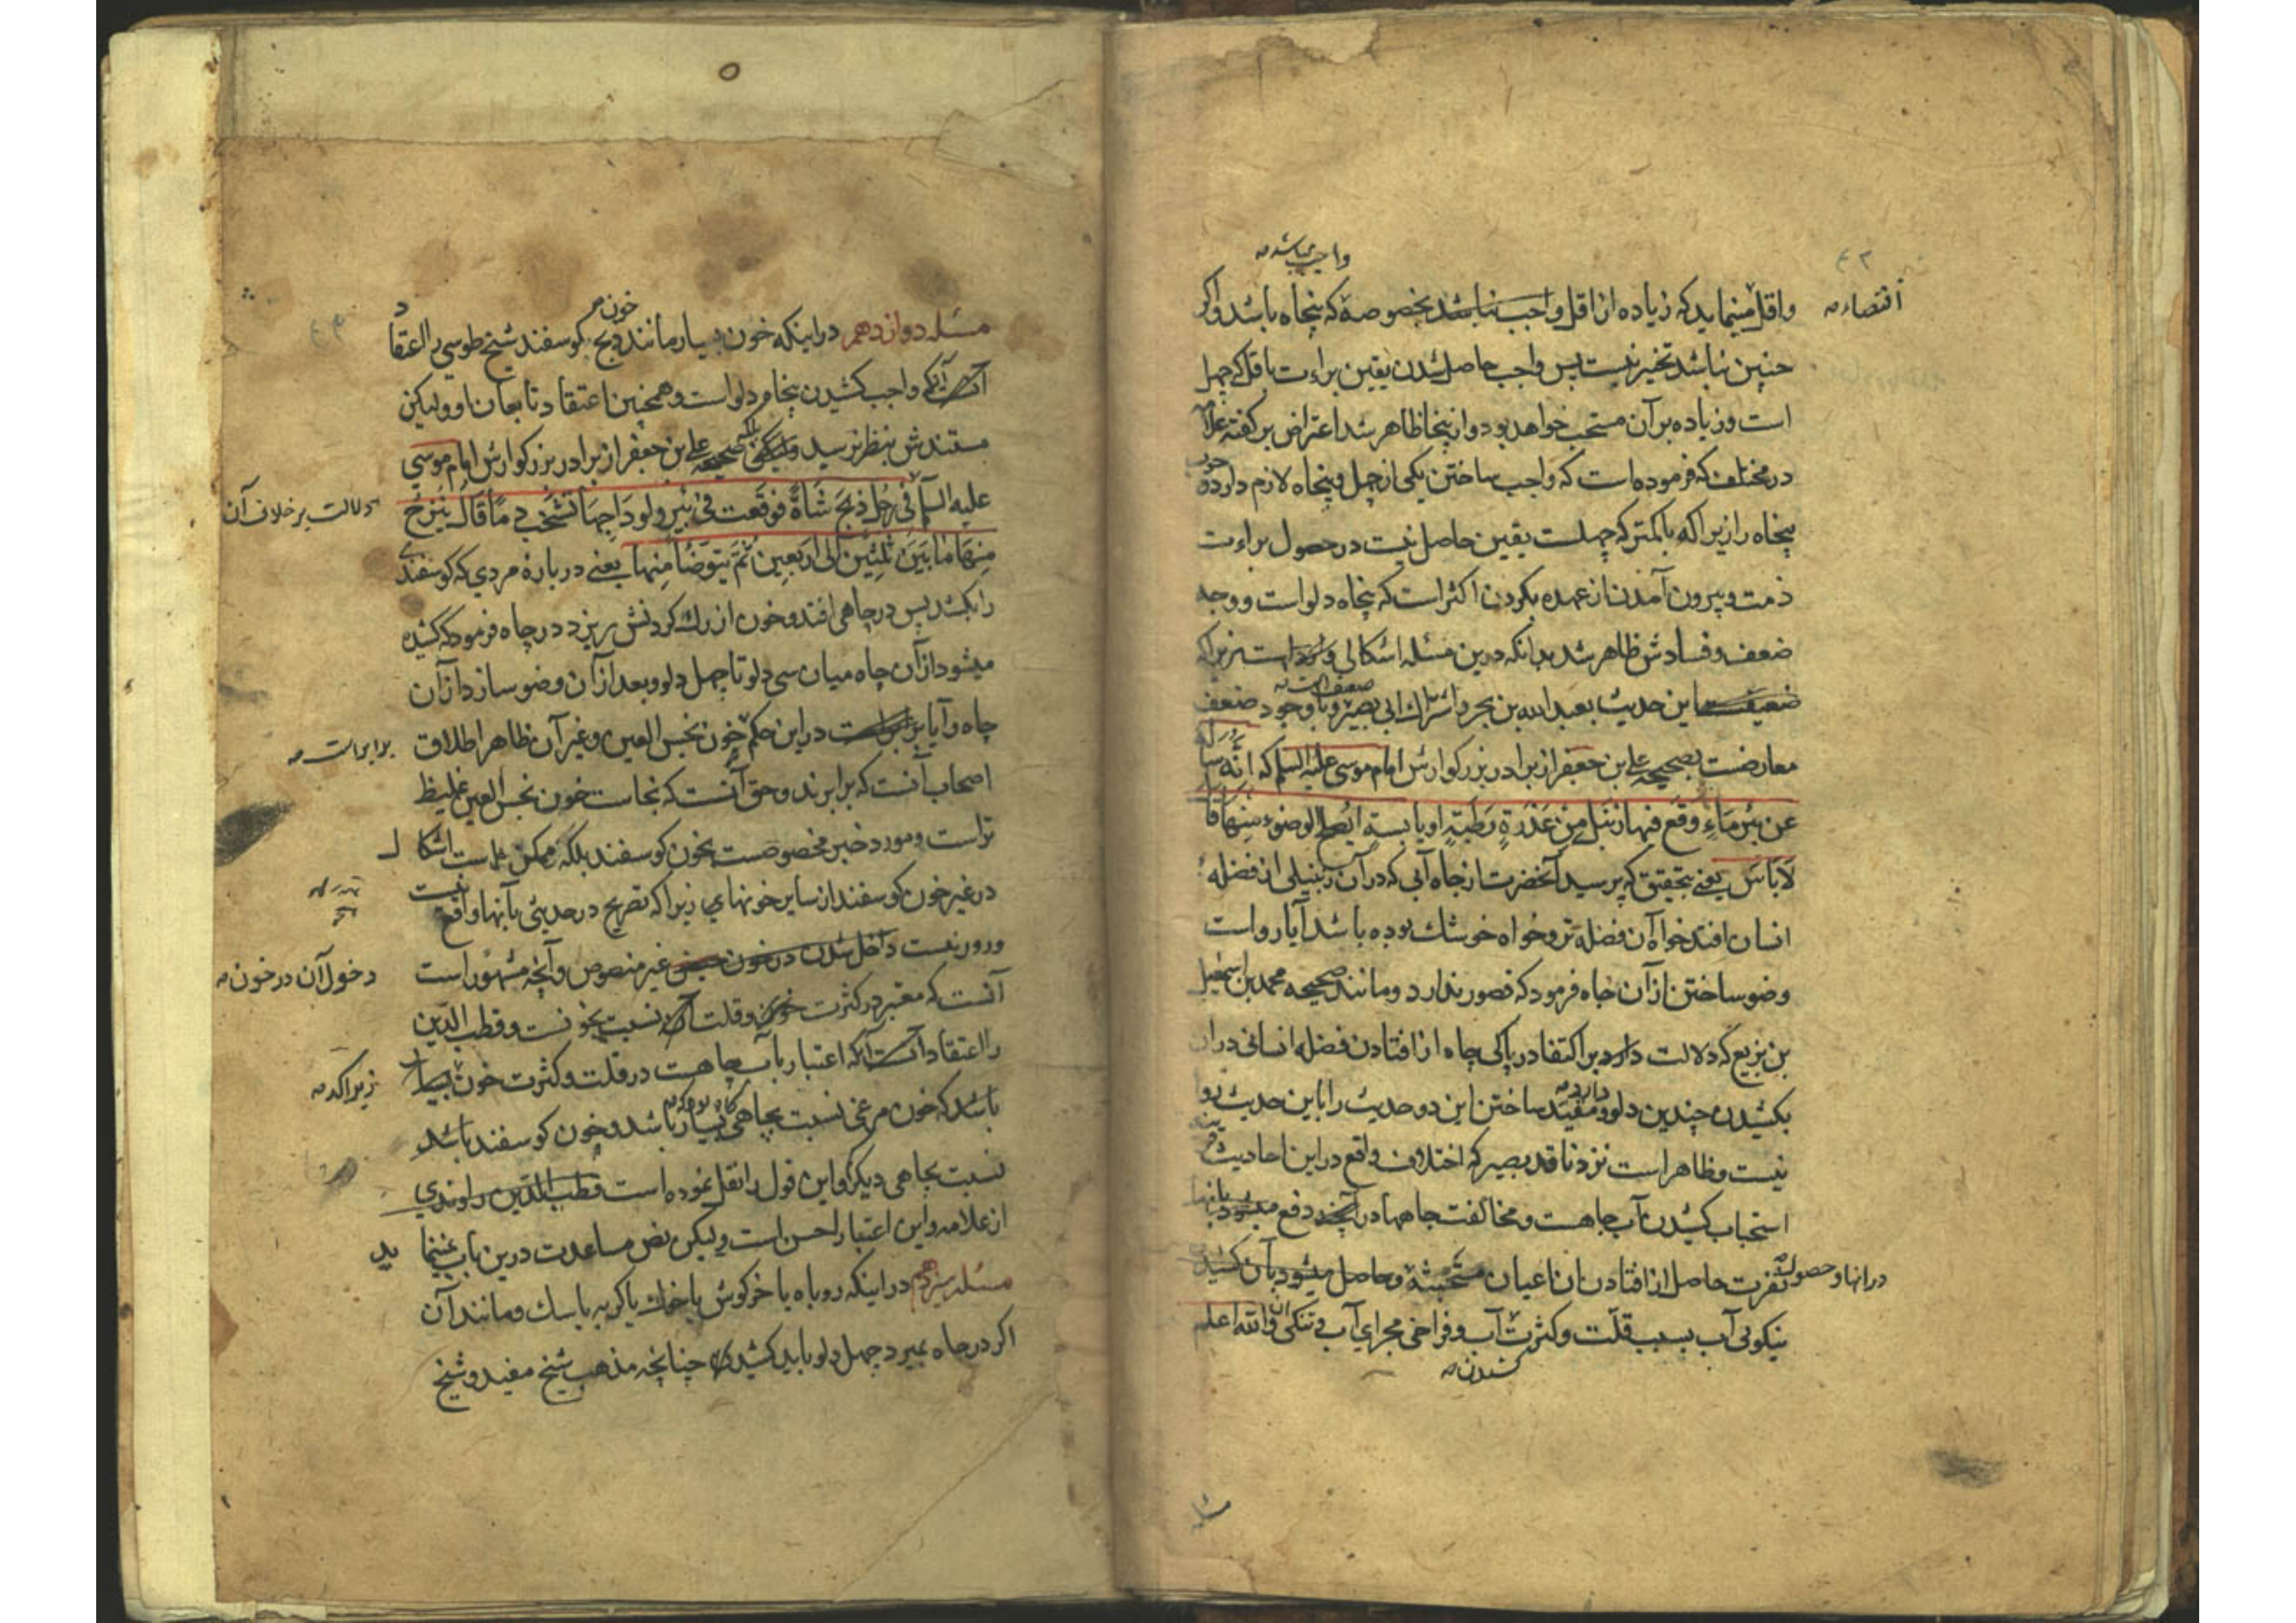 واجب باشد صه
اقتضاء صه
واقل مینماید که زیاده از اقل واجب نباشد بخصوصه که پنجاه باشد واگر
چنین نباشد تخییر نیست پس واجب حاصل شدن یقین براءت باقل که چهل
است وزیاده بر آن مستحب خواهد بود و از اینجا ظاهر شد اعتراض بر گفته علامه
در مختلف که فرموده است که واجب ساختن یکی از چهل و پنجاه لازم دارد
پنجاه را زیرا که باکمتر که چهلست یقین حاصل نیست در حصول براءت
ذمت و بیرون آمدن از عهده بکردن اکثر است که پنجاه دلو است و وجه
ضعف و فسادش ظاهر شد بدانکه درین مسئله اشکالی زیرا که
این حدیث بعبد الله بن بحر و اشتراک ابی بصیر و با وجود ضعف
معارضست بصحیحه علی بن جعفر از برادر بزرگوارش امام موسی علیه السلم که انّه سأل
عن بئر ماءٍ وقع فیها زنبیل من عذرة رطبة او یابسة ایصلح الوضوء منها قال
لا باس یعنی بتحقیق که پرسید آنحضرت از چاه آبی که در آن زنبیلی از فضله
انسان افتد خواه آن فضله تر و خواه خوشک بوده باشد آیا رواست
وضو ساختن از آن چاه فرمود که قصور ندارد و مانند صحیحه محمد بن اسمعیل
بن بزیع که دلالت دارد بر اکتفا در پاکی چاه از افتادن فضله انسانی در آن
بکشیدن چندین دلو و مقید ساختن این دو حدیث را باین حدیث رو
نیست و ظاهر است نزد ناقد بصیر که اختلاف واقع در این احادیث
استحباب کشیدن آب چاهست و مخالفت چاهها در آنچه دفع میشود بآنها
در آنها و حصول نفرت حاصل از افتادن آن اعیان وحاصل میشود بآن کشیدن
نیکوئی آب بسبب قلّت و کثرت آب و فراخی مجرای آب و تنگی آن والله اعلم
مسئله دوازدهم در اینکه خون بسیار مانند خون ذبح گوسفند شیخ طوسی را اعتقاد
آنکه واجب کشیدن پنجاه دلو است و همچنین اعتقاد تابعان او ولیکن
مستندش بنظر نرسید بلکه صحیحه علی بن جعفر از برادر بزرگوارش امام موسی
علیه السلم فی رجل ذبح شاةً فوقعت فی بئر ولوداجها تشخب دماً قال ینزح
دلالت بر خلاف آن
منها ما بین ثلثین الی اربعین ثم یتوضأ منها یعنی در بارهٔ مردی که گوسفندی
را بکشد پس در چاهی افتد و خون از رگ گردنش ریزد در چاه فرمود که کشیده
میشود از آن چاه میان سی دلو تا چهل دلو و بعد از آن وضو سازد از آن
چاه و آیا در این حکم خون نجس العین و غیر آن ظاهر اطلاق
برابر است صه
اصحاب آنست که برابرند و حق آنست که نجاست خون نجس العین غلیظ
تر است و مورد خبر مخصوصست بخون گوسفند بلکه ممکن است اشکال
در غیر خون گوسفند از سایر خونهای زیرا که تصریح در حدیثی بآنها واقع نیست
ورور نیست داخل شدن در خون غیر منصوص و آنچه مشهور است
دخول آن در خون صه
آنست که معتبر در کثرت خون و قلت آن نسبت بخونست و قطب الدّین
را اعتقاد آنکه اعتبار بآب چاهست در قلت و کثرت خون بسا
زیرا که صه
باشد که خون مرغی نسبت بچاهی بسیار باشد و خون گوسفند باشد
نسبت بچاهی دیگر و این قول را نقل نموده است قطب الدّین راوندی
از علامه و این اعتبار احسن است ولیکن نص مساعدت درین باب نمینماید
مسئله سیزدهم در اینکه روباه یا خرگوش یا خوک یا گربه یا سک و مانند آن
اگر در چاه بمیرد چهل دلو باید کشید چنانچه مذهب شیخ مفید و شیخ